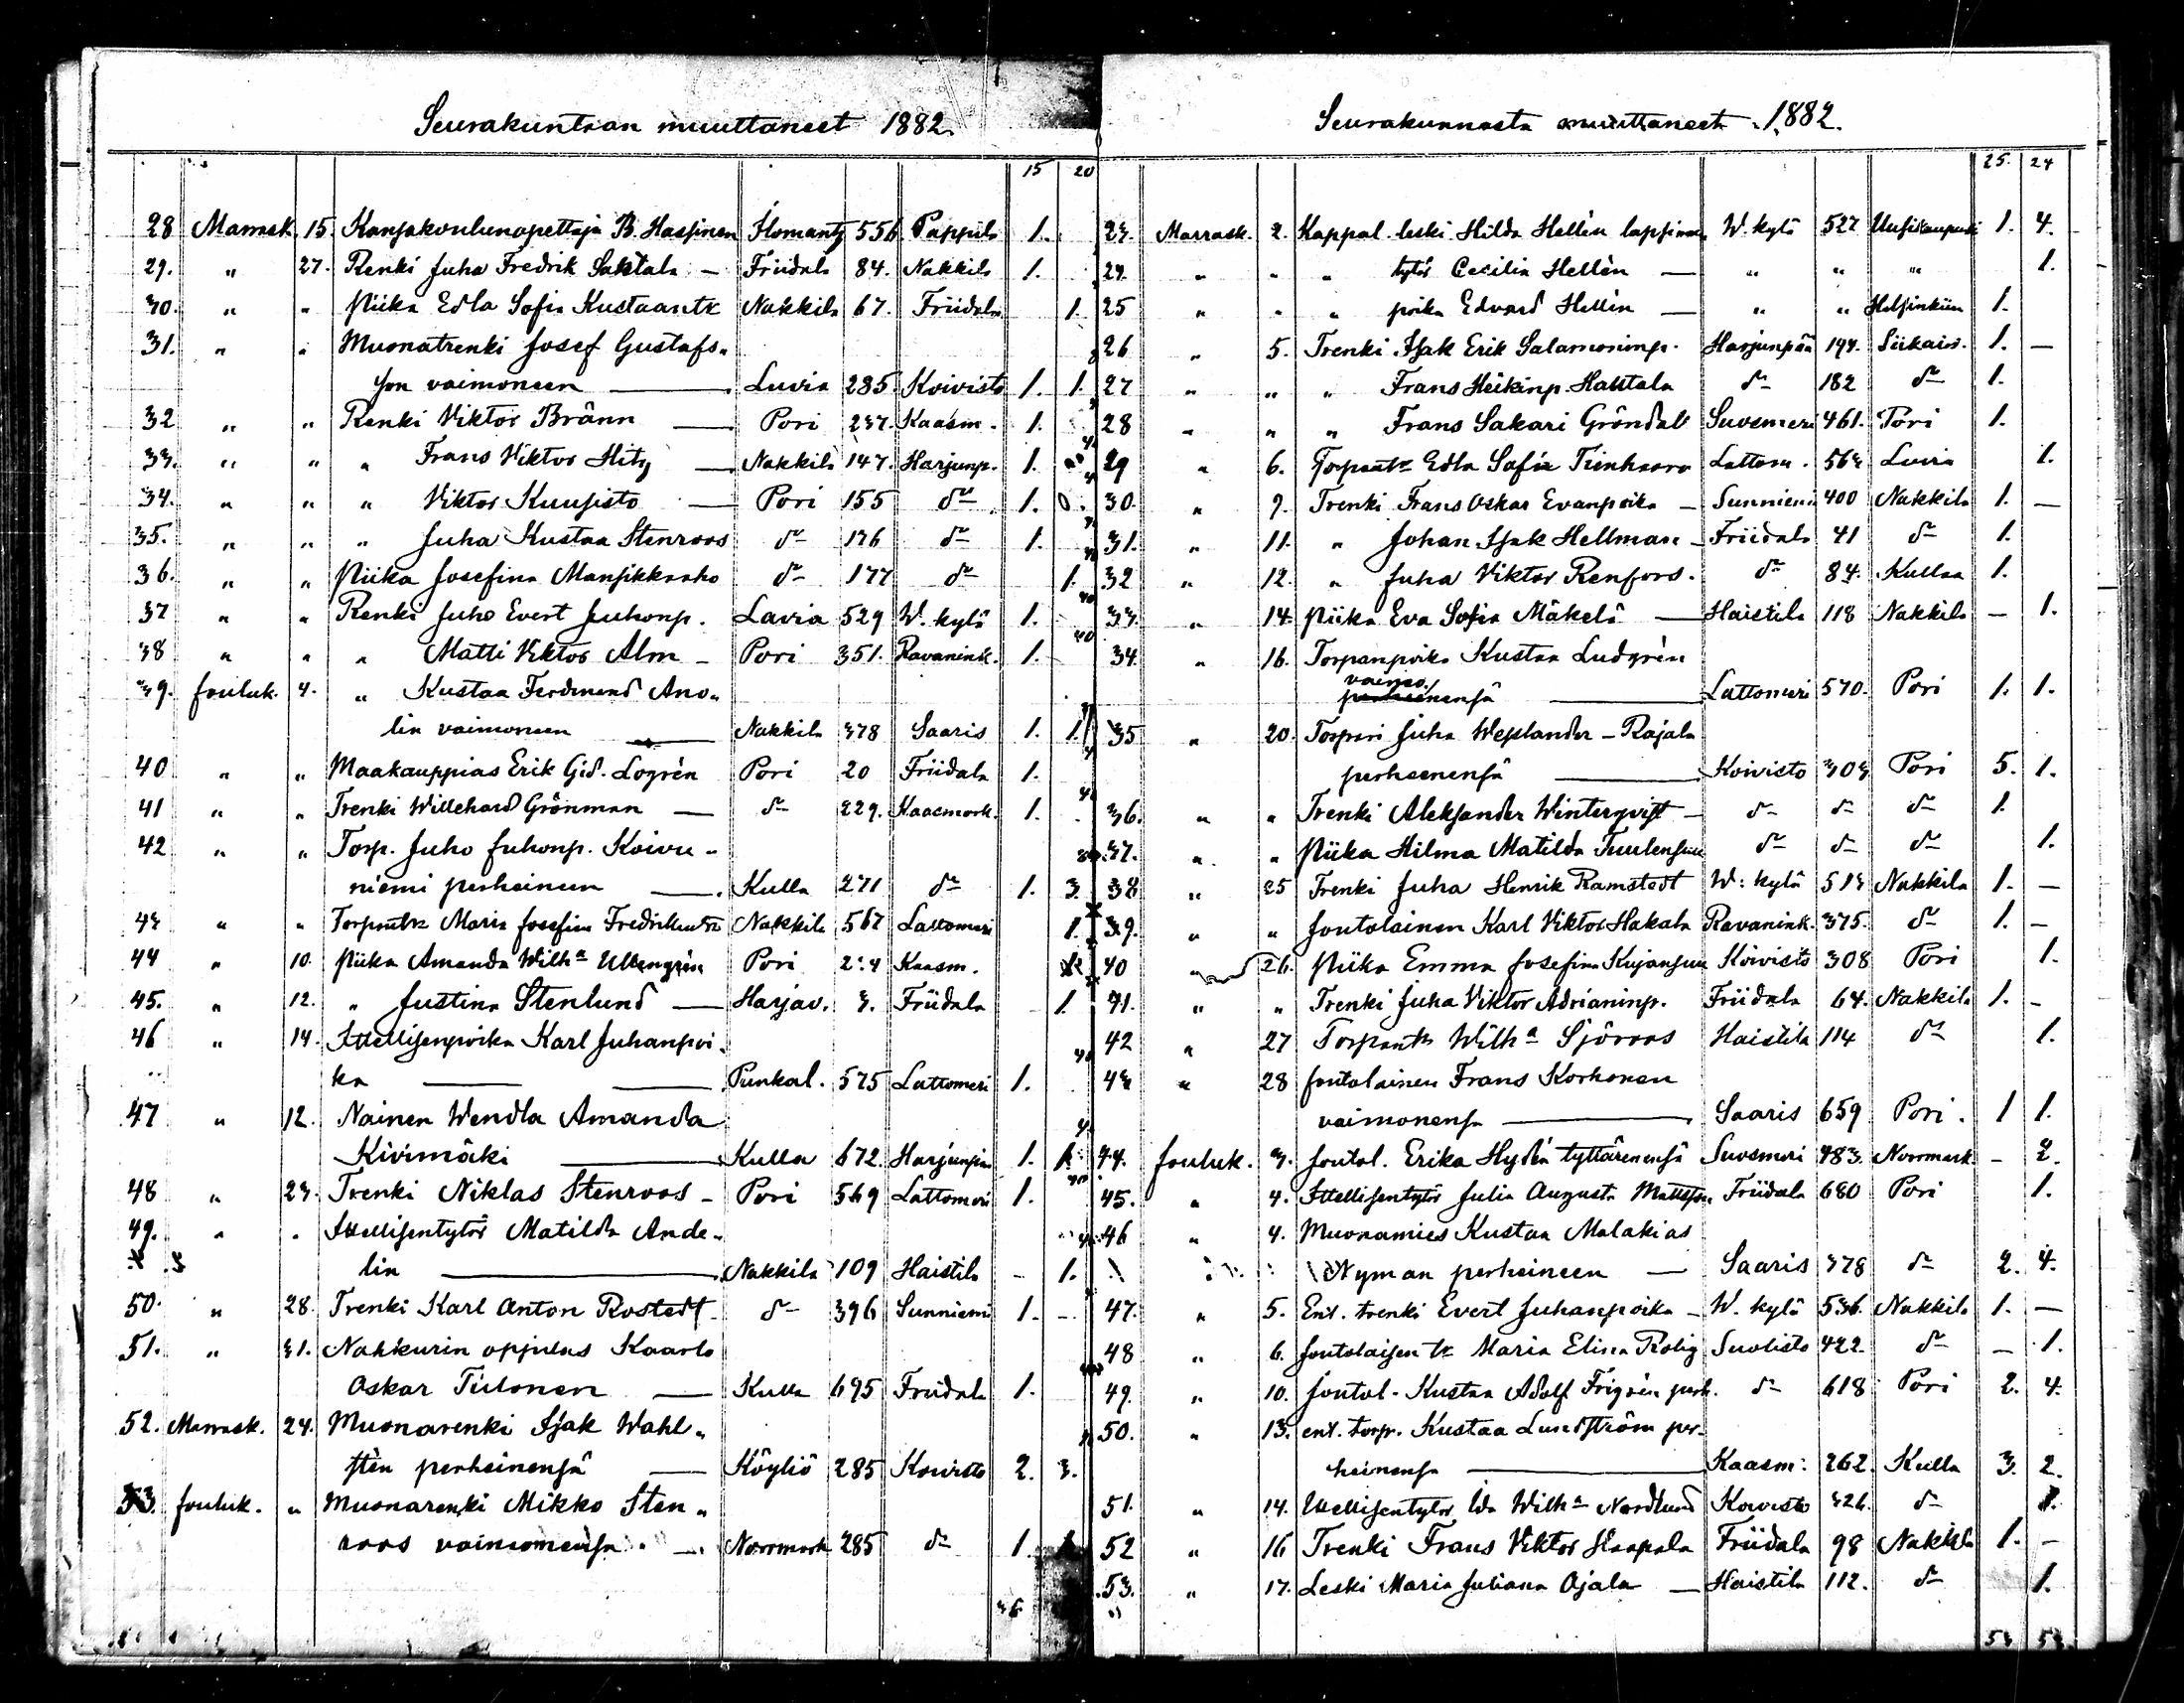 Seurakuntaan muuttaneet 1882.
15 20
28 Marrask. 15. Kansakoulunopettaja B. Hassinen Ilomants 556 Pappila 1.
29. " 27. Renki Juha Fredrik Saktala — Friidala 84. Nakkila 1.
30. " " Piika Edla Sofia Kustaantr Nakkila 67. Friidala 1.
31. " " Muonatrenki Josef Gustafs-
son vaimoneen — Luvia 285. Koivisto 1. 1.
32 " " Renki Viktor Bränn — Pori 237. Kaasm. 1.
33. " " " Frans Viktor Hitz — Nakkila 147. Harjunp. 1.
34. " " " Viktor Kuusisto — Pori 155 do 1. 0.
35. " " " Juha Kustaa Stenroos do 176 do 1.
36. " " Piika Josefina Mansikkaaho do 177 do 1.
37 " " Renki Juho Evert Juhonp. Lavia 529 W. kylä 1.
38 " " " Matti Viktor Alm — Pori 351. Ravanink. 1.
39. Jouluk. 4. " Kustaa Ferdinand Ano-
lin vaimoneen — Nakkila 378 Saaris 1. 1.
40 " " Maakauppias Erik Gid. Logrén Pori 20 Friidala 1.
41 " " Trenki Willehard Grönman — do 229. Kaasmark. 1.
42 " " Torp. Juho Juhonp. Koivu-
niemi perheineen — Kulla 271 do 1. 3.
43 " " Torpantr Maria Josefina Fredrikintr Nakkila 567 Lattomeri 1.
44 " 10. Piika Amanda Wilha Ullengrén Pori Kaasm.
45. " 12. " Justina Stenlund — Harjav. 3. Friidala 1.
46 " 14. Itsellisenpoika Karl Juhanpoi-
ka — Punkal. 575 Lattomeri 1.
47 " 12. Nainen Wendla Amanda
Kivimäki — Kulla 672. Harjunpää 1.
48 " 23. Trenki Niklas Stenroos — Pori 569 Lattomeri 1.
49. " " Itsellisentytör Matilda Ande-
lin — Nakkila 109 Haistila - 1.
50. " 28. Trenki Karl Anton Rostedt — do 396 Sunniemi 1. -
51. " 31. Nahkurin oppilas Kaarlo
Oskar Tiilonen — Kulla 695 Friidala 1.
52. Marrask. 24. Muonarenki Isak Wahl-
stén perheinensä — Köyliö 285 Koivisto 2. 3.
53. Jouluk. " Muonarenki Mikko Sten-
roos vaimonensa — Norrmark 285 do 1. 1.
Seurakunnasta muuttaneet 1882.
25. 24
23. Marrask. 2. Kappal. leski Hilda Hellén lapsineen W. kylä 527 Uusikaupunki 1. 4.
24. " " " tytär Cecilia Hellén — " " " 1.
25 " " " poika Edvard Hellén — " " Helsinkiin 1.
26 " 5. Trenki Isak Erik Salamoninp. Harjunpää 194. Siikais. 1. —
27 " " " Frans Heikinp. Haktala do 182 do 1.
28 " " " Frans Sakari Gröndal Suosmeri 461. Pori 1.
29 " 6. Torpantr Edla Sofia Tienhaara Lattom. 563 Luvia 1.
30. " 7. Trenki Frans Oskar Evanpoika — Sunniemi 400 Nakkila 1. —
31. " 11. " Johan Isak Hellman — Friidala 41 do 1.
32 " 12. " Juha Viktor Renfors. do 84. Kullaa 1.
33. " 14. Piika Eva Sofia Mäkelä — Haistila 118 Nakkila — 1.
34. " 16. Torpanpoika Kustaa Ludgrén
vaimonensä — Lattomeri 570. Pori 1. 1.
35 " 20. Torpari Juha Weslander-Rajala
perheenensä — Koivisto 303 Pori 5. 1.
36. " " Trenki Aleksander Winterqvist — do do do 1.
37. " " Piika Hilma Matilda Tuulensuu do do do 1.
38 " 25 Trenki Juha Henrik Ramstedt W. kylä 513 Nakkila 1. —
39. " " Joutolainen Karl Viktor Hakala Ravanink. 375. do 1. —
40 " 26. Piika Emma Josefina Kujansuu Koivisto 308 Pori 1.
41. " " Trenki Juha Viktor Adrianinp. Friidala 64. Nakkila 1. -
42 " 27 Torpantr Wilha Sjöroos Haistila 114 do 1.
43 " 28 Joutolainen Frans Korhonen
vaimonensa — Saaris 659 Pori. 1 1.
44. Jouluk. 3. Joutol. Erika Hydén tyttärenensä Suosmeri 483. Norrmark. - 2.
45. " 4. Itsellisentytör Julia Augusta Mattsson Friidala 680 Pori 1.
46 " 4. Muonamies Kustaa Malakias
Nyman perheineen — Saaris 378 do 2. 4.
47. " 5. Ent. trenki Evert Juhanpoika — W. kylä 536. Nakkila 1. —
48 " 6. Joutolaisen tr Maria Elina Rolig Suolisto 422. do — 1.
49. " 10. Joutol. Kustaa Adolf Frigrén perh. do 618 Pori 2. 4.
50. " 13. ent. torp. Kustaa Lundström per-
heinensa — Kaasm. 262. Kulla 3. 2.
51. " 14. Itsellisentytör Ida Wilha Nordlund Koivisto 326. do 1.
52 " 16 Trenki Frans Viktor Haapala Friidala 98 Nakkila 1. —
53. " 17. Leski Maria Juliana Ojala — Haistila 112. do 1.
53 53.